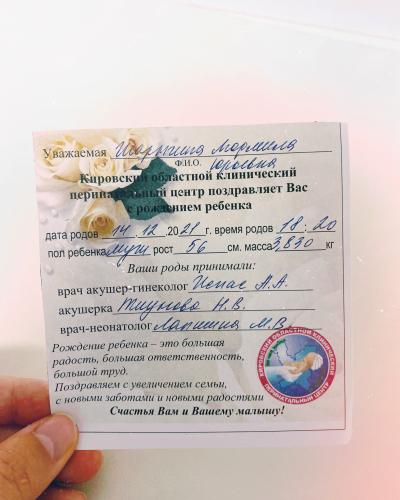 Уважаемая Шарыгина Людмила
Ф.И.О. Юрьевна
Кировский областной клинический
перинатальный центр поздравляет Вас
с рождением ребенка
дата родов 14. 12. 2021 г. время родов 18 : 20
пол ребенка муж рост 56 см. масса 3,830 кг
Ваши роды принимали:
врач акушер-гинеколог А.А.
акушерка Н.В.
врач-неонатолог Лапшина М.В.
Рождение ребенка – это большая
радость, большая ответственность,
большой труд.
Поздравляем с увеличением семьи,
с новыми заботами и новыми радостями
Счастья Вам и Вашему малышу!
КИРОВСКИЙ ОБЛАСТНОЙ КЛИНИЧЕСКИЙ
ПЕРИНАТАЛЬНЫЙ ЦЕНТР